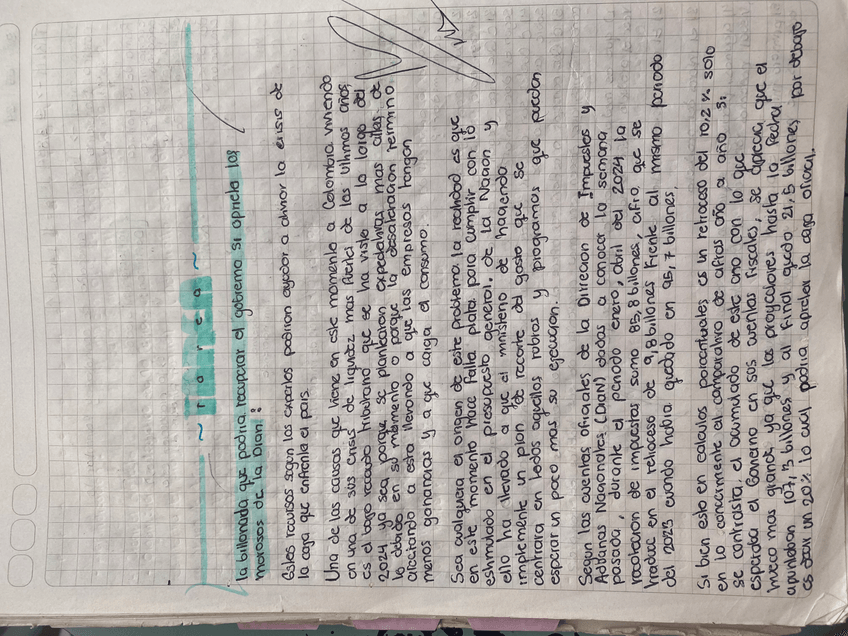 ~ Tarea ~
la billonada que podria recuperar el gobierno si aprieta los
morosos de la Dian?
Estos recursos segun los expertos podrian ayudar a aliviar la crisis de
la caja que enfrenta el pais.
Una de las causas que tiene en este momento a Colombia viviendo
en una de sus crisis de liquidez mas fuertes de los ultimos años,
es el bajo recaudo tributario que se ha visto a lo largo del
2024 ya sea porque se plantearon expectativas mas alla de
lo debido en su momento o porque la desaceleracion termino
afectando a esta llevando a que las empresas tengan
menos ganancias y a que caiga el consumo.
Sea cualquiera el origen de este problema la realidad es que
en este momento hace falta plata para cumplir con lo
estimulado en el presupuesto general de la Nacion y
ello ha llevado a que el ministerio de hacienda
implemente un plan de recorte del gasto que se
centrara en todos aquellos rubros y programas que puedan
esperar un poco mas su ejecucion.
Segun las cuentas oficiales de la Direccion de Impuestos y
Aduanas Nacionales (Dian) dadas a conocer la semana
pasada, durante el periodo enero, abril del 2024 la
recaudacion de impuestos sumo 85,8 billones, cifra que se
traduce en el retroceso de 9,8 billones frente al mismo periodo
del 2023 cuando habia quedado en 95,7 billones,
Si bien esto en calculos porcentuales es un retroceso del 10,2% solo
en lo concerniente al comparativo de cifras año a año si
se contrasta, el acumulado de este año con lo que
esperaba el Gobierno en sus cuentas fiscales, se aprecia que el
hueco mas grande ya que las proyecciones hasta la fecha
apuntaban 107,3 billones y al final quedo 21,5 billones por debajo
es decir un 20% lo cual podria apretar la caja oficial.